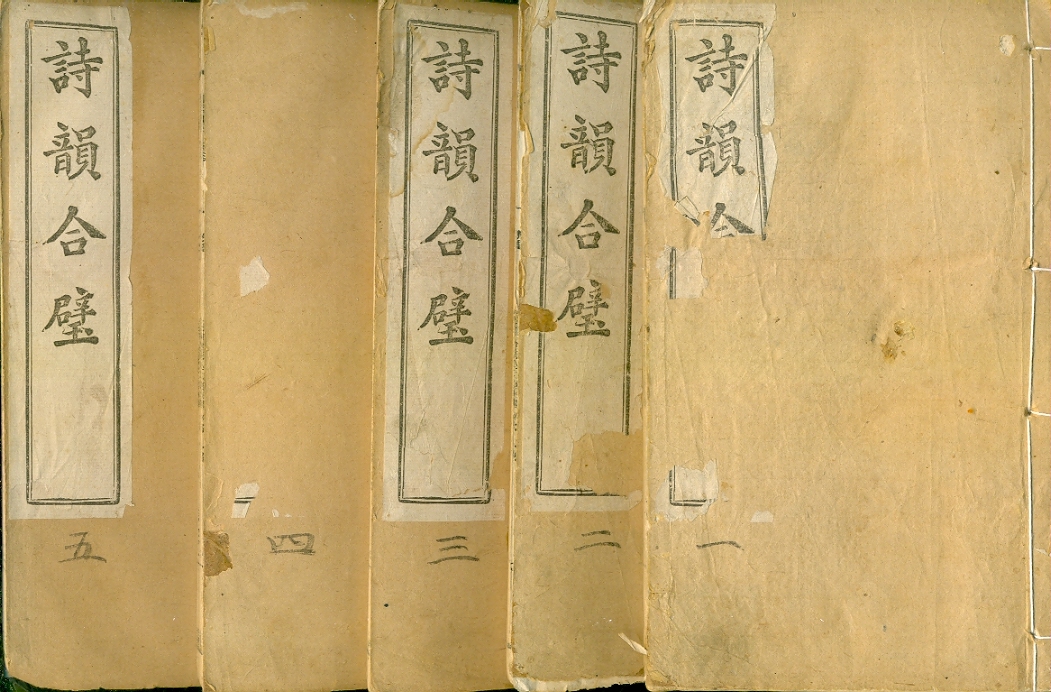 詩韻合
一
詩韻合璧
二
詩韻合璧
三
四
詩韻合璧
五